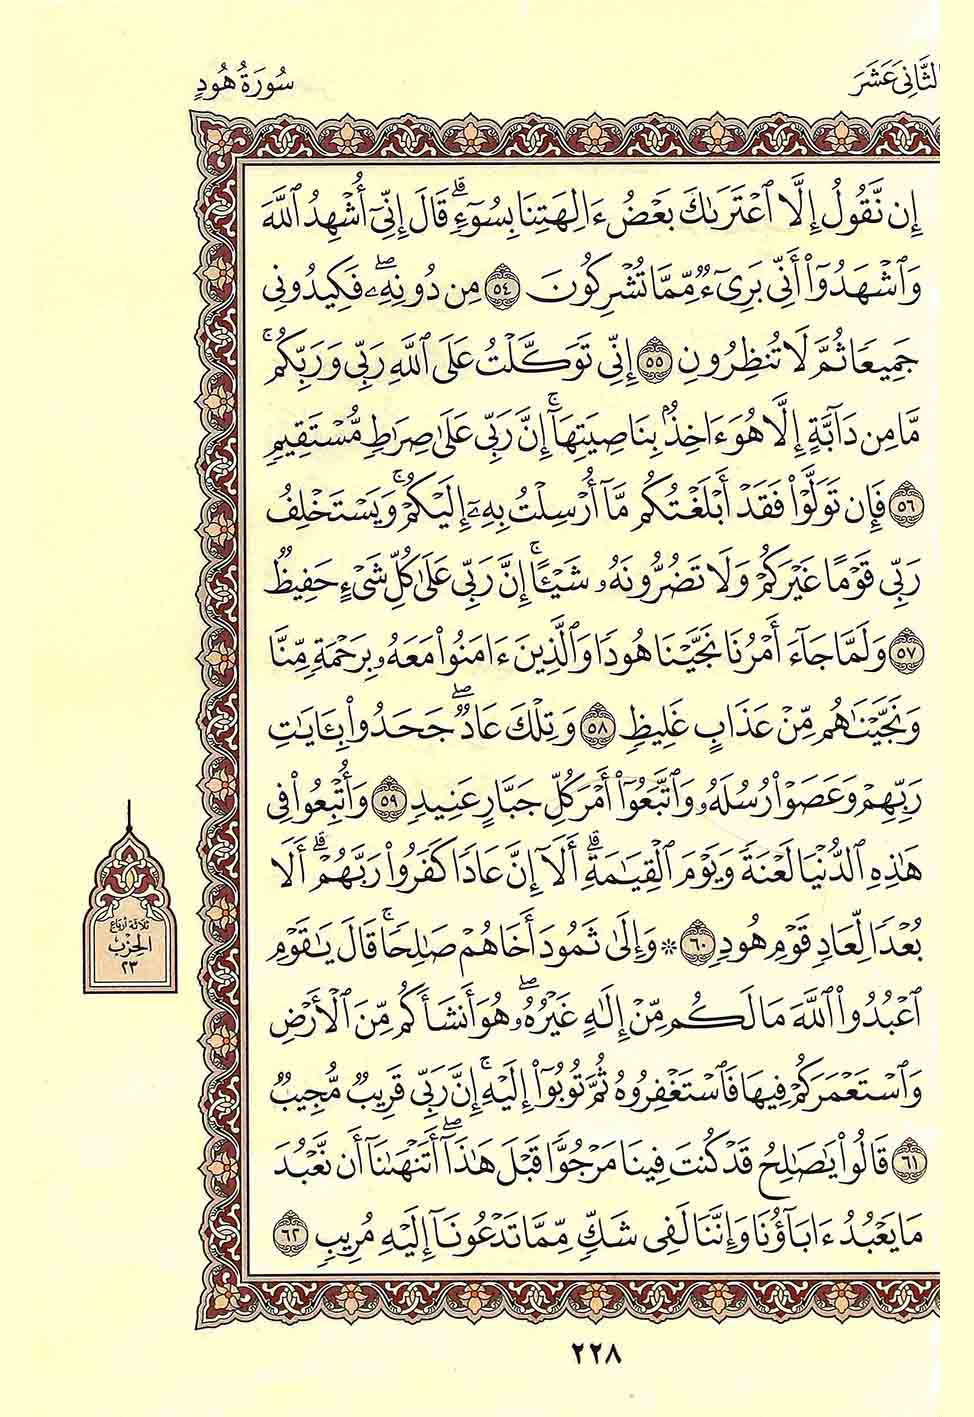 سُورَةُ هُودٍ
الثَّانِي عَشَرَ
إِن نَّقُولُ إِلَّا ٱعْتَرَىٰكَ بَعْضُ ءَالِهَتِنَا بِسُوٓءٖۗ قَالَ إِنِّيٓ أُشْهِدُ ٱللَّهَ
وَٱشْهَدُوٓاْ أَنِّي بَرِيٓءٞ مِّمَّا تُشْرِكُونَ ٥٤ مِن دُونِهِۦۖ فَكِيدُونِي
جَمِيعٗا ثُمَّ لَا تُنظِرُونِ ٥٥ إِنِّي تَوَكَّلْتُ عَلَى ٱللَّهِ رَبِّي وَرَبِّكُمۚ
مَّا مِن دَآبَّةٍ إِلَّا هُوَ ءَاخِذُۢ بِنَاصِيَتِهَآۚ إِنَّ رَبِّي عَلَىٰ صِرَٰطٖ مُّسْتَقِيمٖ
٥٦ فَإِن تَوَلَّوْاْ فَقَدْ أَبْلَغْتُكُم مَّآ أُرْسِلْتُ بِهِۦٓ إِلَيْكُمْۚ وَيَسْتَخْلِفُ
رَبِّي قَوْمًا غَيْرَكُمْ وَلَا تَضُرُّونَهُۥ شَيْـًٔاۚ إِنَّ رَبِّي عَلَىٰ كُلِّ شَيْءٍ حَفِيظٞ
٥٧ وَلَمَّا جَآءَ أَمْرُنَا نَجَّيْنَا هُودٗا وَٱلَّذِينَ ءَامَنُواْ مَعَهُۥ بِرَحْمَةٖ مِّنَّا
وَنَجَّيْنَٰهُم مِّنْ عَذَابٍ غَلِيظٖ ٥٨ وَتِلْكَ عَادٞۖ جَحَدُواْ بِـَٔايَٰتِ
رَبِّهِمْ وَعَصَوْاْ رُسُلَهُۥ وَٱتَّبَعُوٓاْ أَمْرَ كُلِّ جَبَّارٍ عَنِيدٖ ٥٩ وَأُتْبِعُواْ فِي
هَٰذِهِ ٱلدُّنْيَا لَعْنَةٗ وَيَوْمَ ٱلْقِيَٰمَةِۗ أَلَآ إِنَّ عَادٗا كَفَرُواْ رَبَّهُمْۗ أَلَا
بُعْدٗا لِّعَادٖ قَوْمِ هُودٖ ٦٠ ۞ وَإِلَىٰ ثَمُودَ أَخَاهُمْ صَٰلِحٗاۚ قَالَ يَٰقَوْمِ
ٱعْبُدُواْ ٱللَّهَ مَا لَكُم مِّنْ إِلَٰهٍ غَيْرُهُۥۖ هُوَ أَنشَأَكُم مِّنَ ٱلْأَرْضِ
وَٱسْتَعْمَرَكُمْ فِيهَا فَٱسْتَغْفِرُوهُ ثُمَّ تُوبُوٓاْ إِلَيْهِۚ إِنَّ رَبِّي قَرِيبٞ مُّجِيبٞ
٦١ قَالُواْ يَٰصَٰلِحُ قَدْ كُنتَ فِينَا مَرْجُوّٗا قَبْلَ هَٰذَآۖ أَتَنْهَىٰنَآ أَن نَّعْبُدَ
مَا يَعْبُدُ ءَابَآؤُنَا وَإِنَّنَا لَفِي شَكّٖ مِّمَّا تَدْعُونَآ إِلَيْهِ مُرِيبٖ ٦٢
ثلاثة أرباع
الحِزْب
٢٣
٢٢٨